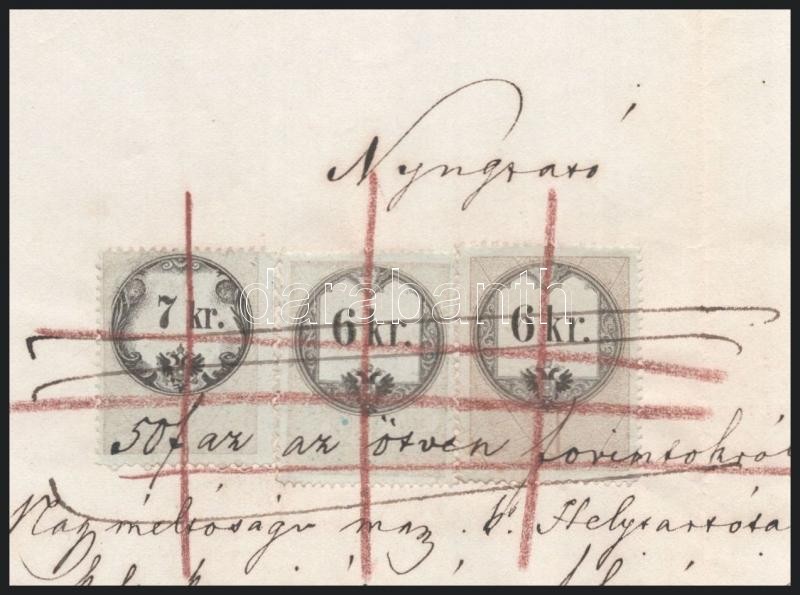 Nyugtató
7 kr. 6 kr. 6 kr.
darabanth
50f az az ötven forintokról
Nagyméltóságu mag. k. Helytartóta